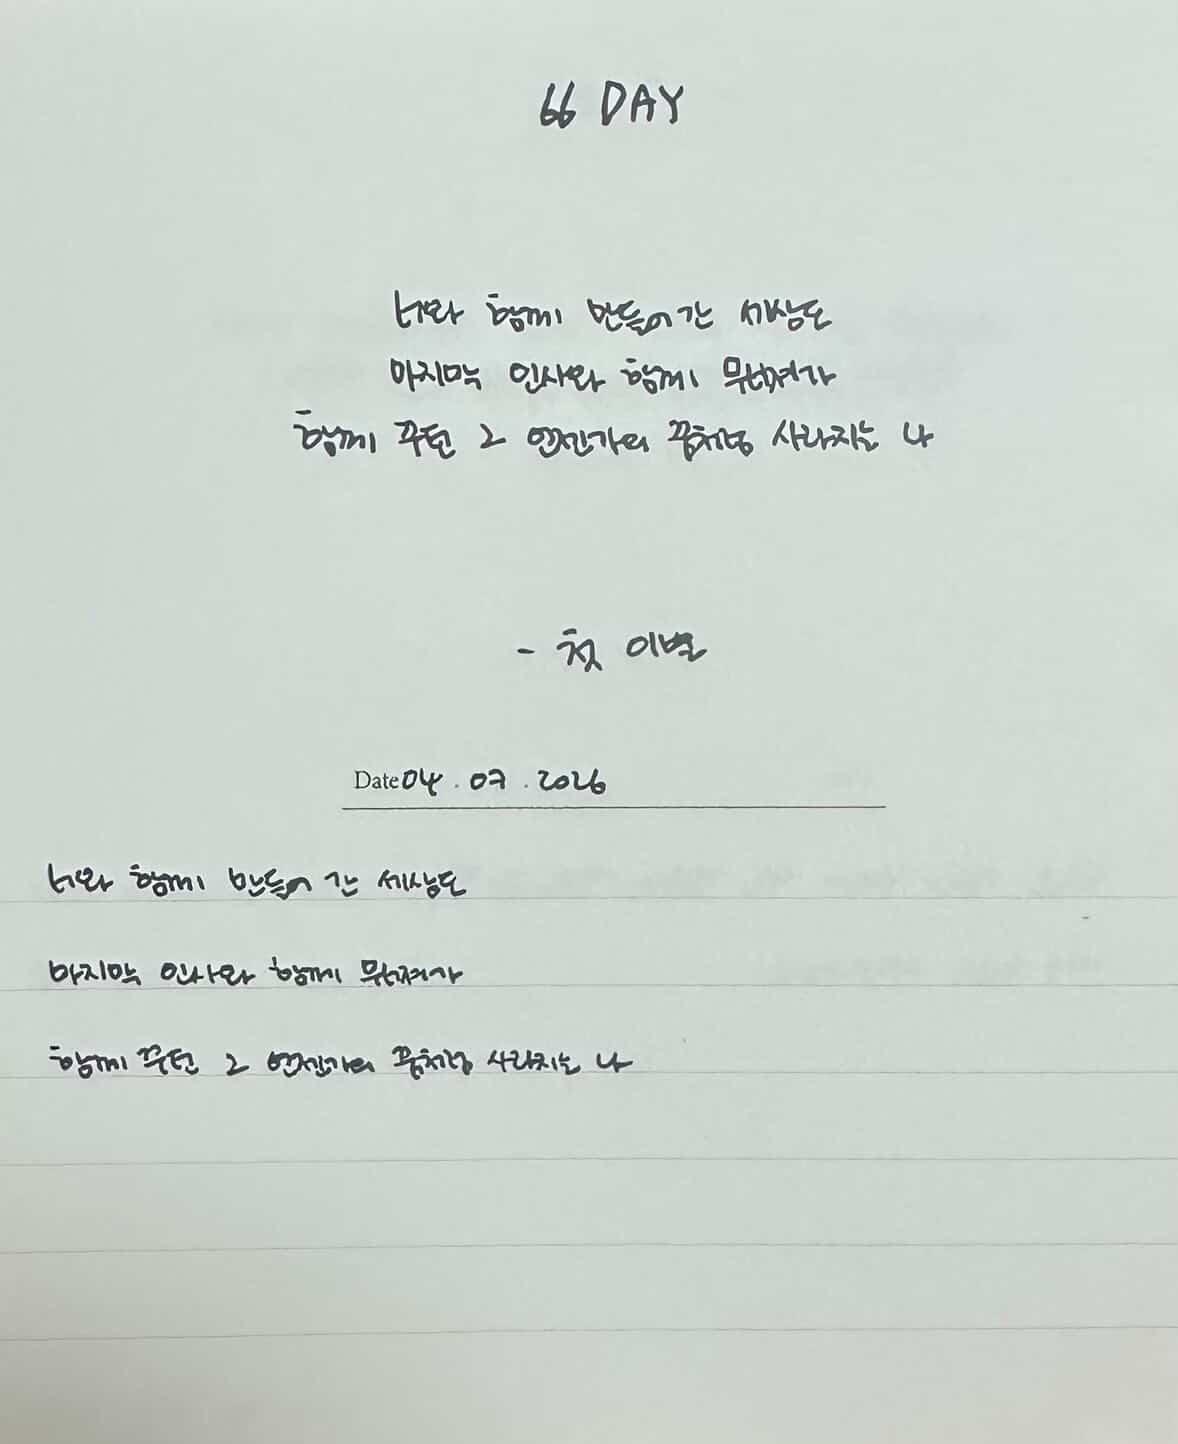 66 DAY
너와 함께 만들어 간 세상도
마지막 인사와 함께 무뎌져가
함께 꾸던 그 언젠가의 꿈처럼 사라지는 나
- 첫 이별
Date 04 . 07 . 2026
너와 함께 만들어 간 세상도
마지막 인사와 함께 무뎌져가
함께 꾸던 그 언젠가의 꿈처럼 사라지는 나